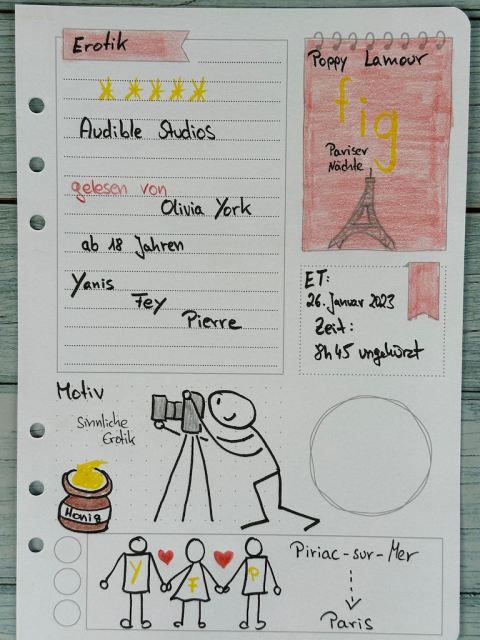 Erotik
Audible Studios
gelesen von
Olivia York
ab 18 Jahren
Yanis
Fey
Pierre
Poppy Lamour
fig
Pariser
Nächte
ET:
26. Januar 2023
Zeit:
8h45 ungekürzt
Motiv
Sinnliche
Erotik
Honig
Y F P
Piriac-sur-Mer
Paris